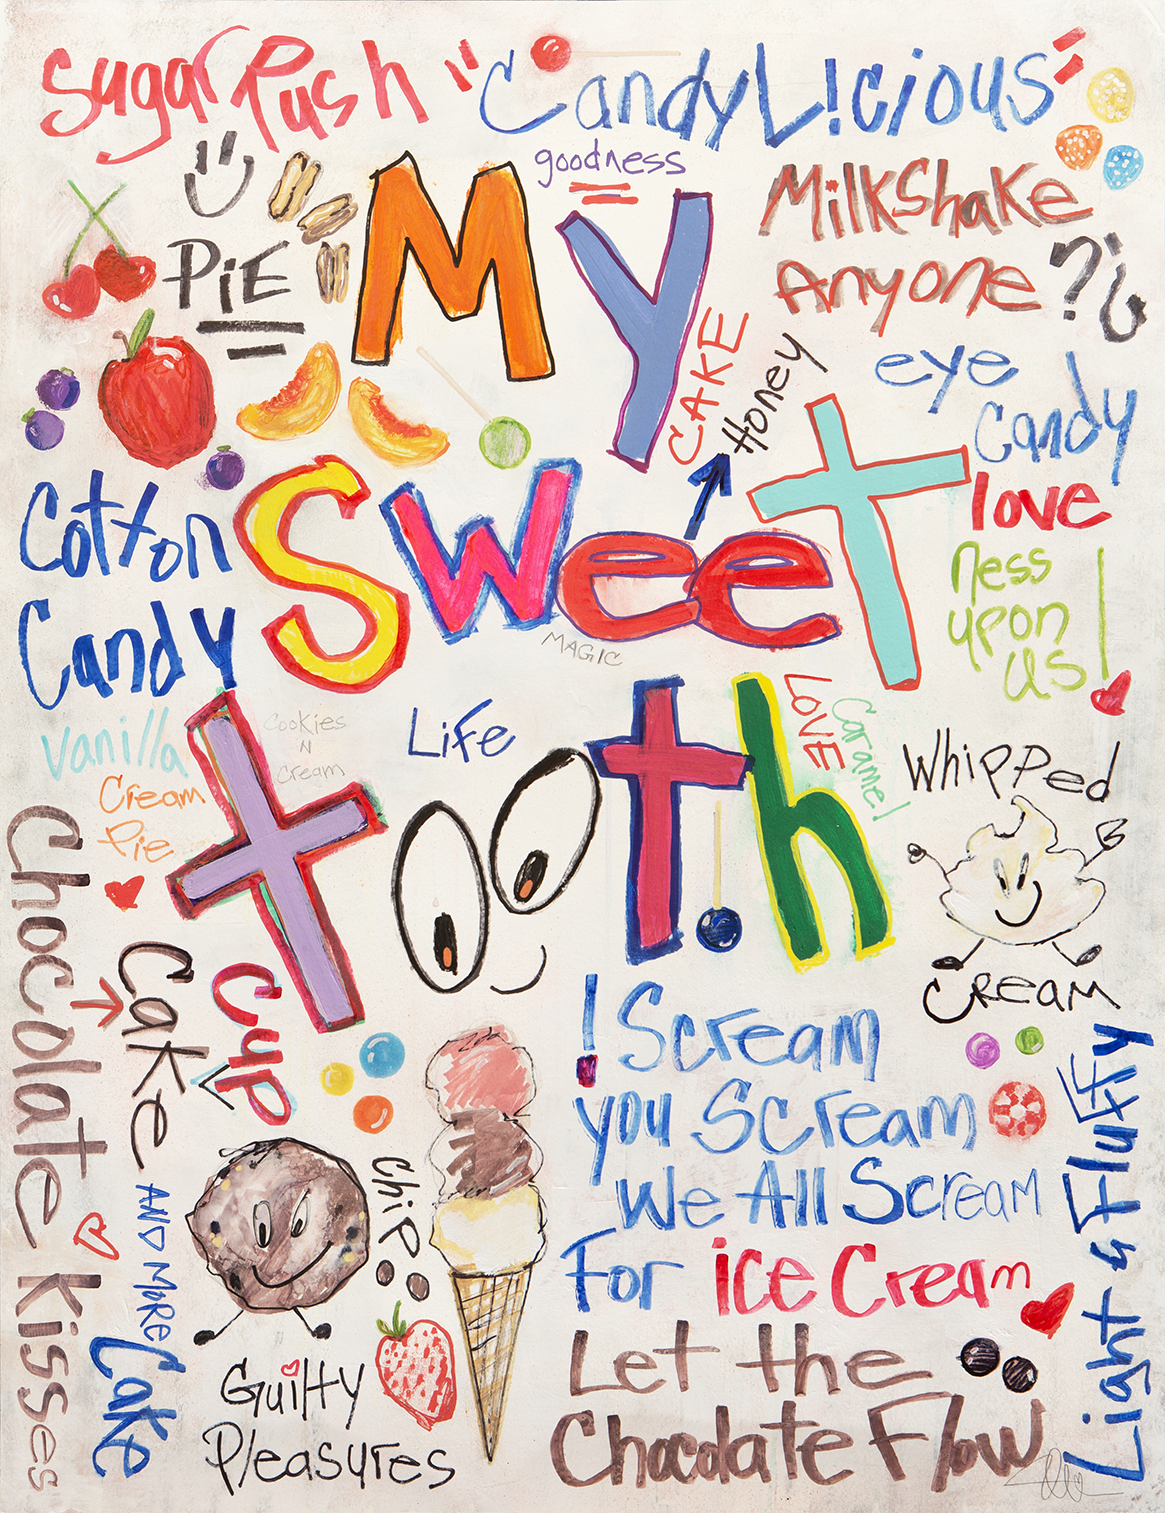 Sugar Rush
"CandyL!cious"
goodness
PiE
My
MilkShake
Anyone ?¿
CAKE
Honey
eye
Candy
Sweet
love
ness
upon
us!
Cotton
Candy
MAGIC
Vanilla
Cream
Pie
Cookies
N
Cream
Life
tooth
LOVE
Caramel
Whipped
CReam
Chocolate Kisses
Cake
Cup
AND MoRe
Cake
ChiP
Guilty
Pleasures
! Scream
you Scream
We All Scream
For ice Cream
Let the
Chocolate Flow
Light & Fluffy